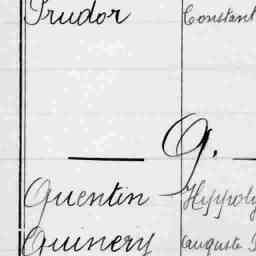 Prudor Constant
Q.
Quentin Hippoly
Quinery Auguste